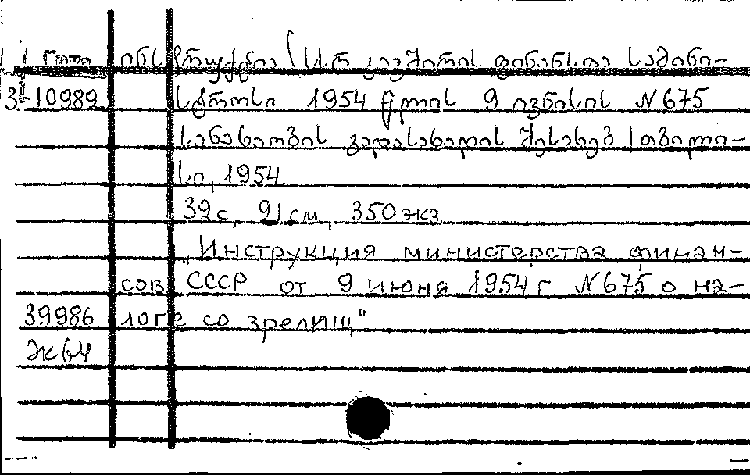 ინსტრუქცია სსრ კავშირის ფინანსთა სამინი-
10989 სტროსი 1954 წლის 9 ივნისის N675
სანახაობის გადასახადის შესახებ თბილი-
სი, 1954
39с, 21см, 350экз
"Инструкция министерства финан-
сов СССР от 9 июня 1954г N675 о на-
39986 логе со зрелищ"
Ж64